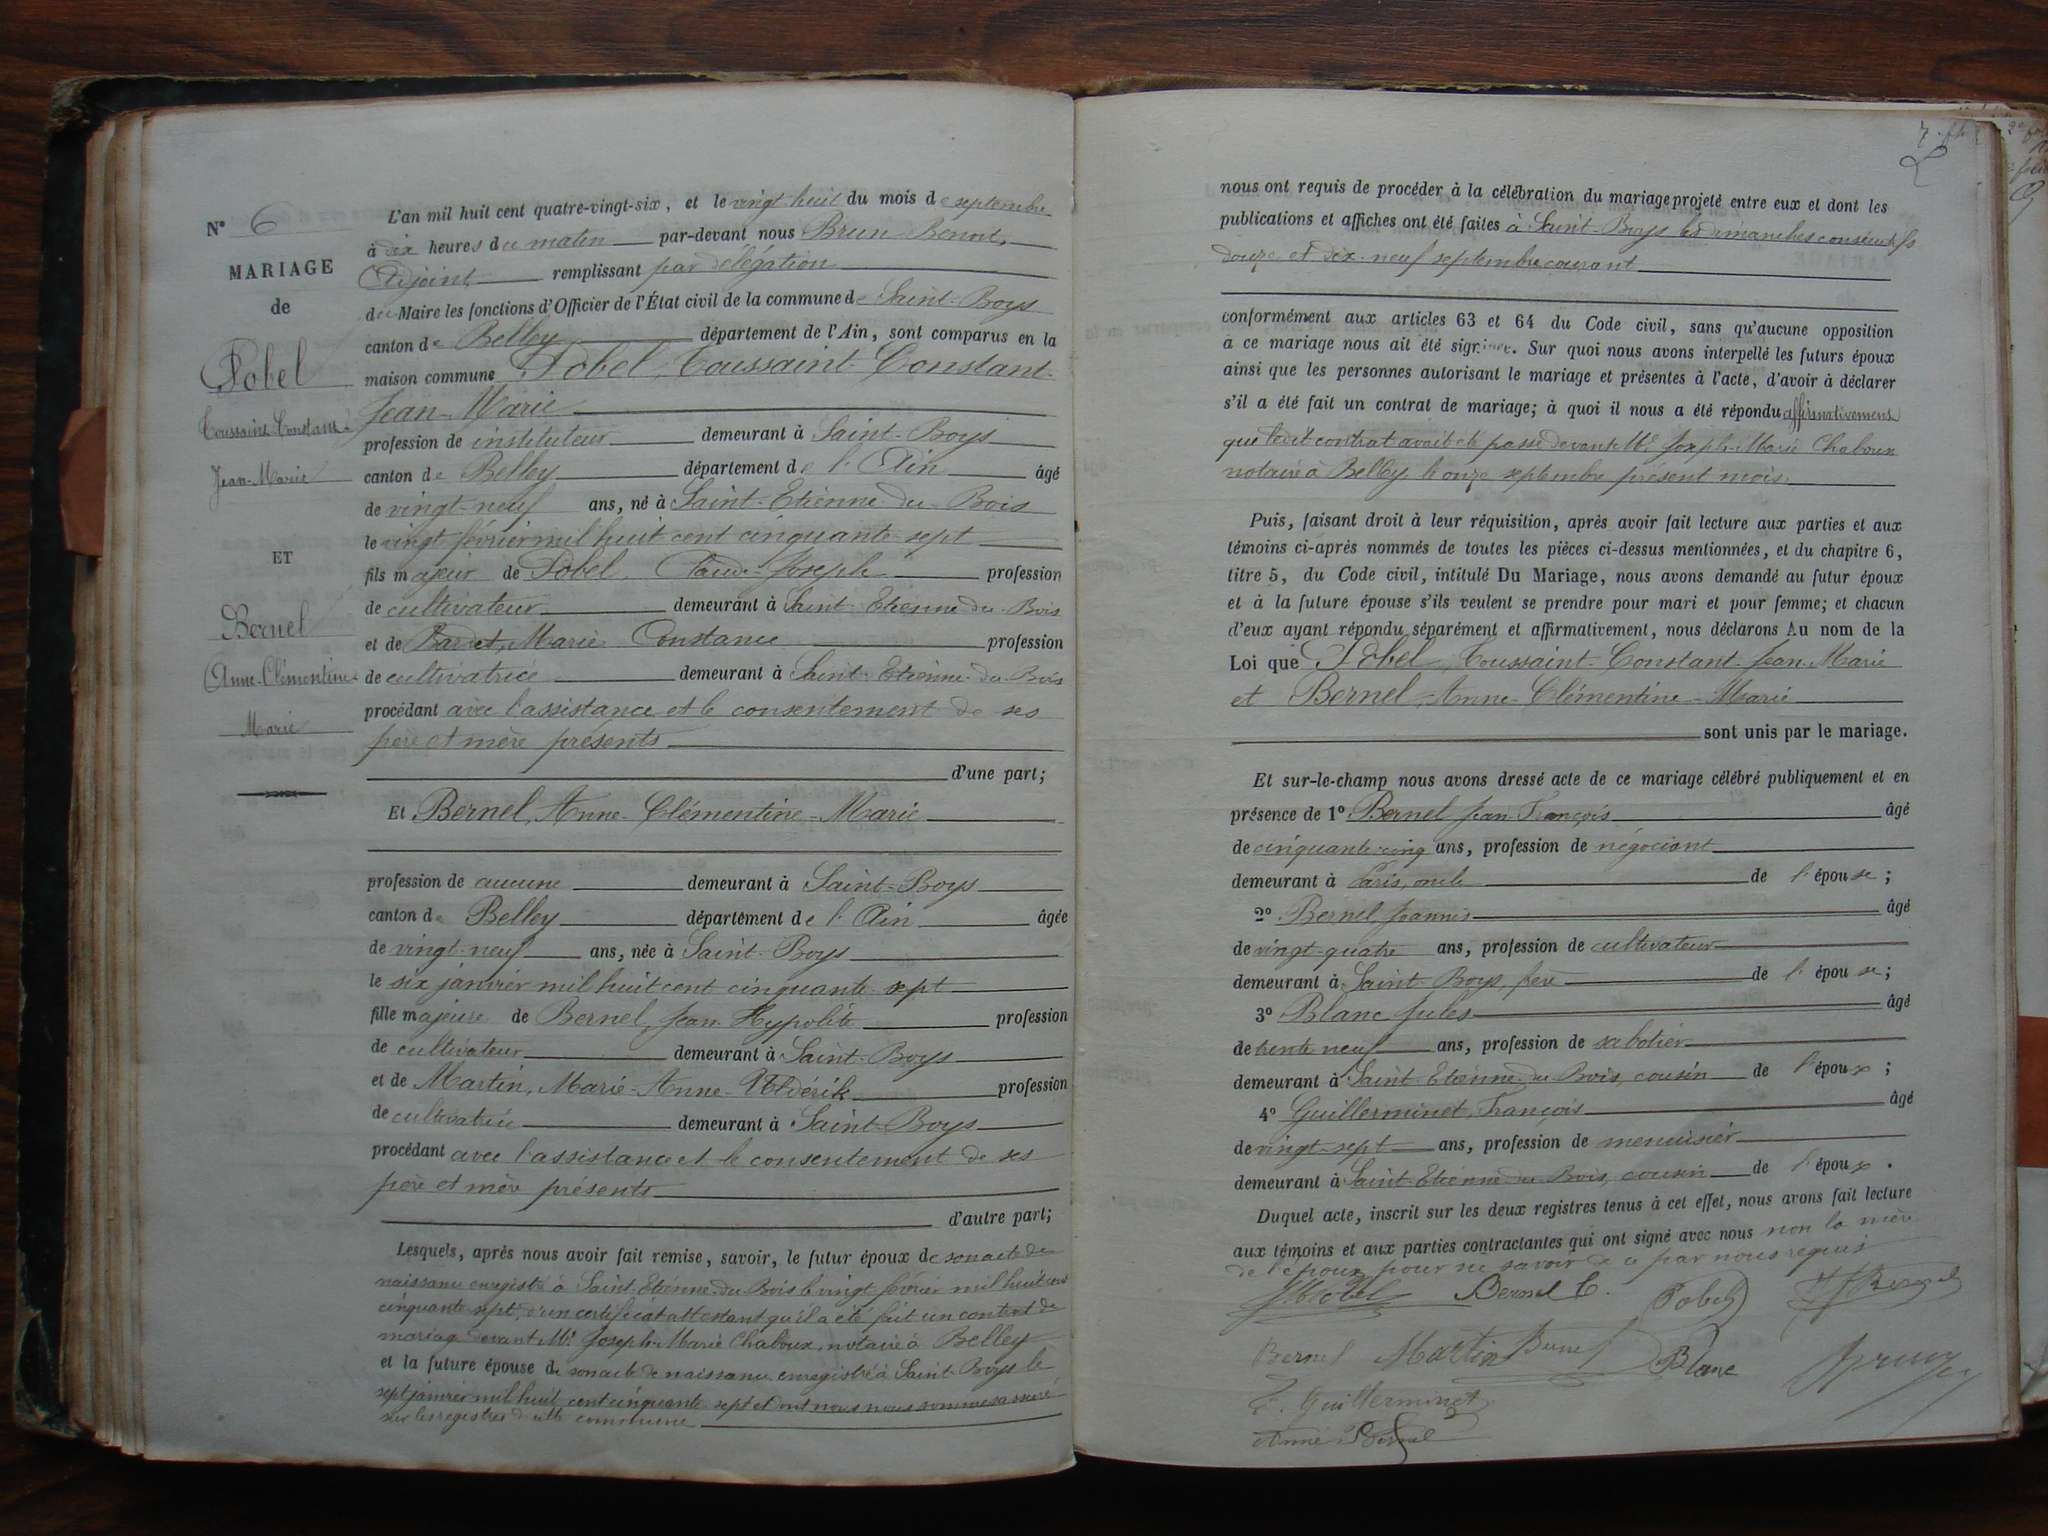 N° 6
MARIAGE
de
Pobel
Toussaint Constant
Jean-Marie
ET
Bernel
Anne-Clémentine
Marie
L'an mil huit cent quatre-vingt-six, et le vingt huit du mois de septembre
à dix heures du matin par-devant nous Brun Benoit,
Adjoint remplissant par délégation
du Maire les fonctions d'Officier de l'État civil de la commune de Saint-Boys
canton de Belley département de l'Ain, sont comparus en la
maison commune Pobel, Toussaint-Constant
Jean-Marie
profession de instituteur demeurant à Saint-Boys
canton de Belley département de l'Ain âgé
de vingt-neuf ans, né à Saint-Etienne du Bois
le vingt février mil huit cent cinquante sept
fils majeur de Pobel, Claude-Joseph profession
de cultivateur demeurant à Saint-Etienne du Bois
et de Bardet, Marie Constance profession
de cultivatrice demeurant à Saint-Etienne-du-Bois
procédant avec l'assistance et le consentement de ses
père et mère présents
d'une part;
Et Bernel, Anne-Clémentine-Marie
profession de aucune demeurant à Saint-Boys
canton de Belley département de l'Ain âgée
de vingt-neuf ans, née à Saint-Boys
le six janvier mil huit cent cinquante sept
fille majeure de Bernel, Jean Hypolite profession
de cultivateur demeurant à Saint-Boys
et de Martin, Marie-Anne profession
de cultivatrice demeurant à Saint-Boys
procédant avec l'assistance et le consentement de ses
père et mère présents
d'autre part;
Lesquels, après nous avoir fait remise, savoir, le futur époux de son acte de
naissance enregistré à Saint-Etienne du Bois le vingt février mil huit cent
cinquante sept, d'un certificat attestant qu'il a été fait un contrat de
mariage devant Me Joseph-Marie Chaboux, notaire à Belley
et la future épouse de son acte de naissance enregistré à Saint-Boys le
sept janvier mil huit cent cinquante sept et dont nous nous sommes assuré
sur les registres de cette commune
nous ont requis de procéder à la célébration du mariage projeté entre eux et dont les
publications et affiches ont été faites à Saint-Boys les dimanches consécutifs
douze et dix-neuf septembre courant
conformément aux articles 63 et 64 du Code civil, sans qu'aucune opposition
à ce mariage nous ait été signifiée. Sur quoi nous avons interpellé les futurs époux
ainsi que les personnes autorisant le mariage et présentes à l'acte, d'avoir à déclarer
s'il a été fait un contrat de mariage; à quoi il nous a été répondu affirmativement
que ledit contrat avait été passé devant Me Joseph-Marie Chaboux
notaire à Belley, le onze septembre présent mois
Puis, faisant droit à leur réquisition, après avoir fait lecture aux parties et aux
témoins ci-après nommés de toutes les pièces ci-dessus mentionnées, et du chapitre 6,
titre 5, du Code civil, intitulé Du Mariage, nous avons demandé au futur époux
et à la future épouse s'ils veulent se prendre pour mari et pour femme; et chacun
d'eux ayant répondu séparément et affirmativement, nous déclarons Au nom de la
Loi que Pobel, Toussaint-Constant-Jean-Marie
et Bernel, Anne-Clémentine-Marie
sont unis par le mariage.
Et sur-le-champ nous avons dressé acte de ce mariage célébré publiquement et en
présence de 1° Bernel Jean-François âgé
de cinquante-cinq ans, profession de négociant
demeurant à Paris, oncle de l'épouse;
2° Bernel, Joannis âgé
de vingt-quatre ans, profession de cultivateur
demeurant à Saint-Boys, frère de l'épouse;
3° Blanc Jules âgé
de trente neuf ans, profession de sabotier
demeurant à Saint-Etienne du Bois, cousin de l'époux;
4° Guillerminet, François âgé
de vingt-sept ans, profession de menuisier
demeurant à Saint-Etienne du Bois, cousin de l'époux.
Duquel acte, inscrit sur les deux registres tenus à cet effet, nous avons fait lecture
aux témoins et aux parties contractantes qui ont signé avec nous non la mère
de l'époux pour ne savoir de ce par nous requis
Pobel Bernel C. Pobel Bernel
Bernel Martin Blanc
F. Guillerminet
Anne Bernel